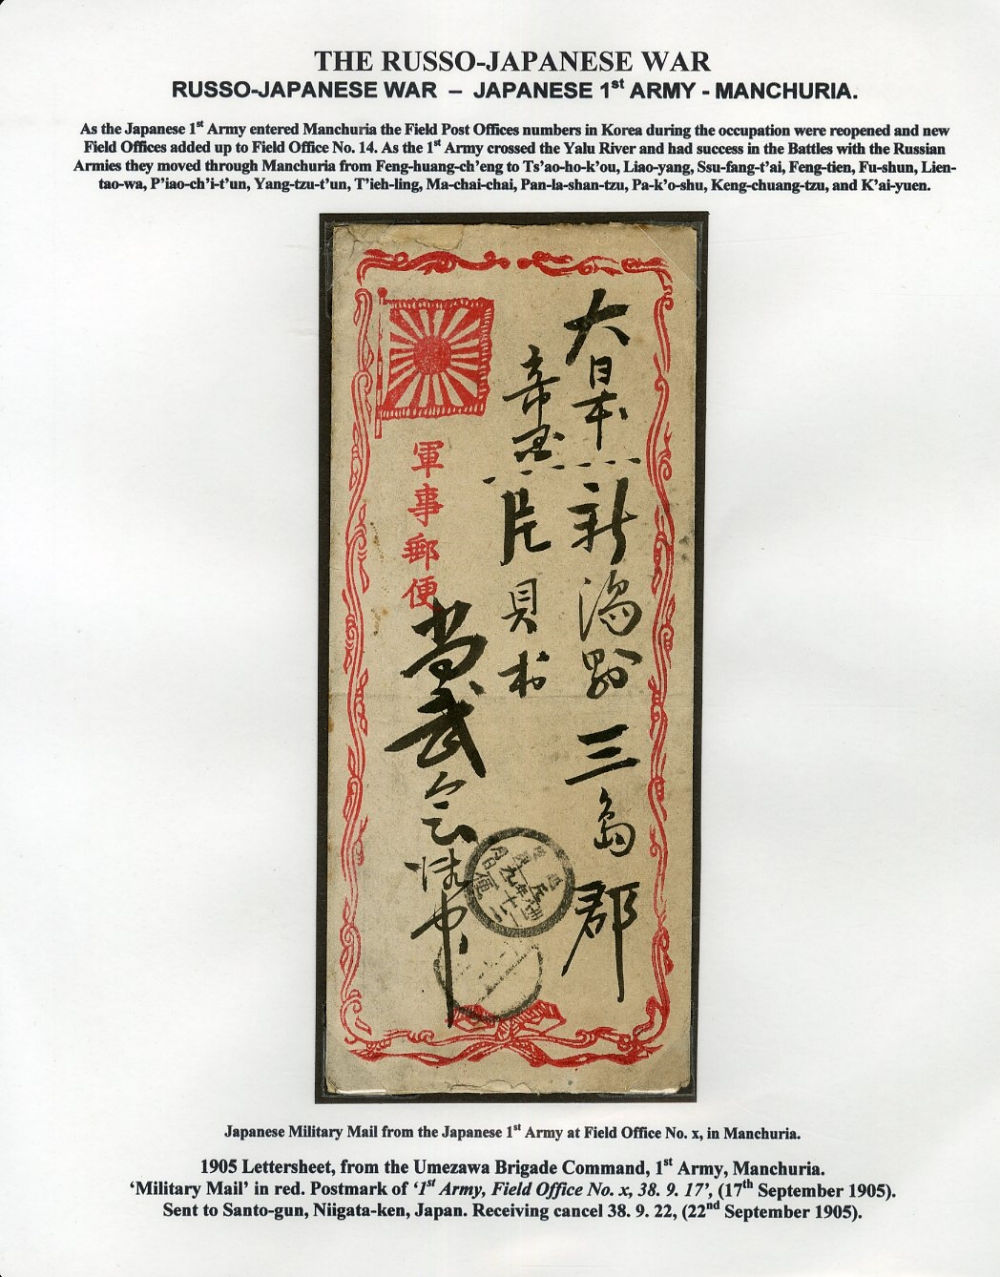 THE RUSSO-JAPANESE WAR
RUSSO-JAPANESE WAR – JAPANESE 1st ARMY - MANCHURIA.
As the Japanese 1st Army entered Manchuria the Field Post Offices numbers in Korea during the occupation were reopened and new
Field Offices added up to Field Office No. 14. As the 1st Army crossed the Yalu River and had success in the Battles with the Russian
Armies they moved through Manchuria from Feng-huang-ch'eng to Ts'ao-ho-k'ou, Liao-yang, Ssu-fang-t'ai, Feng-tien, Fu-shun, Lien-
tao-wa, P'iao-ch'i-t'un, Yang-tzu-t'un, T'ieh-ling, Ma-chai-chai, Pan-la-shan-tzu, Pa-k'o-shu, Keng-chuang-tzu, and K'ai-yuen.
大日本新潟縣三島郡
帝国片貝村
軍事郵便
尚武会御中
Japanese Military Mail from the Japanese 1st Army at Field Office No. x, in Manchuria.
1905 Lettersheet, from the Umezawa Brigade Command, 1st Army, Manchuria.
'Military Mail' in red. Postmark of '1st Army, Field Office No. x, 38. 9. 17', (17th September 1905).
Sent to Santo-gun, Niigata-ken, Japan. Receiving cancel 38. 9. 22, (22nd September 1905).